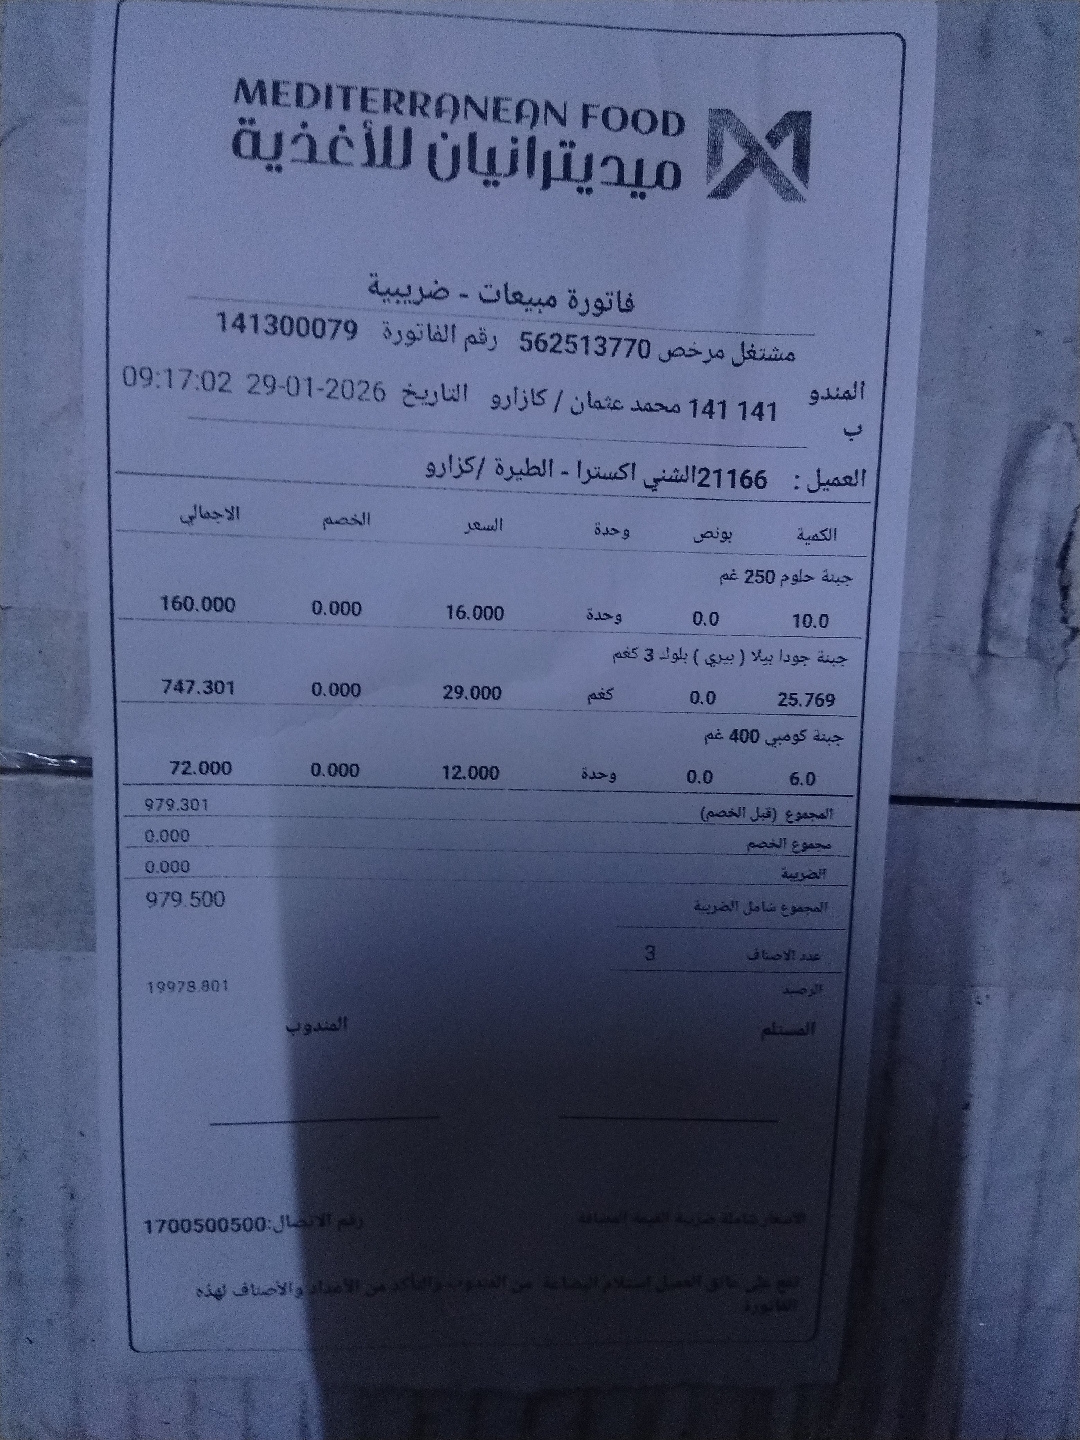 MEDITERRANEAN FOOD
ميديترانيان للأغذية
فاتورة مبيعات - ضريبية
مشتغل مرخص 562513770 رقم الفاتورة 141300079
المندوب 141 141 محمد عثمان / كازارو التاريخ 29-01-2026 09:17:02
العميل : 21166الشني اكسترا - الطيرة /كزارو
الكمية بونص وحدة السعر الخصم الاجمالي
جبنة حلوم 250 غم
10.0 0.0 وحدة 16.000 0.000 160.000
جبنة جودا بيلا ( بيري ) بلوك 3 كغم
25.769 0.0 كغم 29.000 0.000 747.301
جبنة كومبي 400 غم
6.0 0.0 وحدة 12.000 0.000 72.000
المجموع (قبل الخصم) 979.301
مجموع الخصم 0.000
الضريبة 0.000
المجموع شامل الضريبة 979.500
عدد الاصناف 3
الرصيد 19978.801
المستلم المندوب
الاسعار شاملة ضريبة القيمة المضافة رقم الاتصال:1700500500
تقع على عاتق العميل استلام البضاعة من المندوب والتأكد من الأعداد والأصناف لهذه
الفاتورة